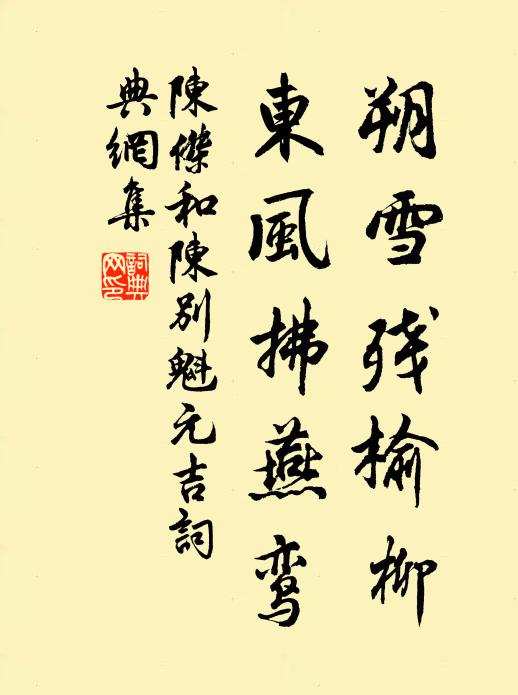 朔雪残榆柳
東風拂燕鸾
陳傑和陳别魁元吉詞
典網集
詞典网印